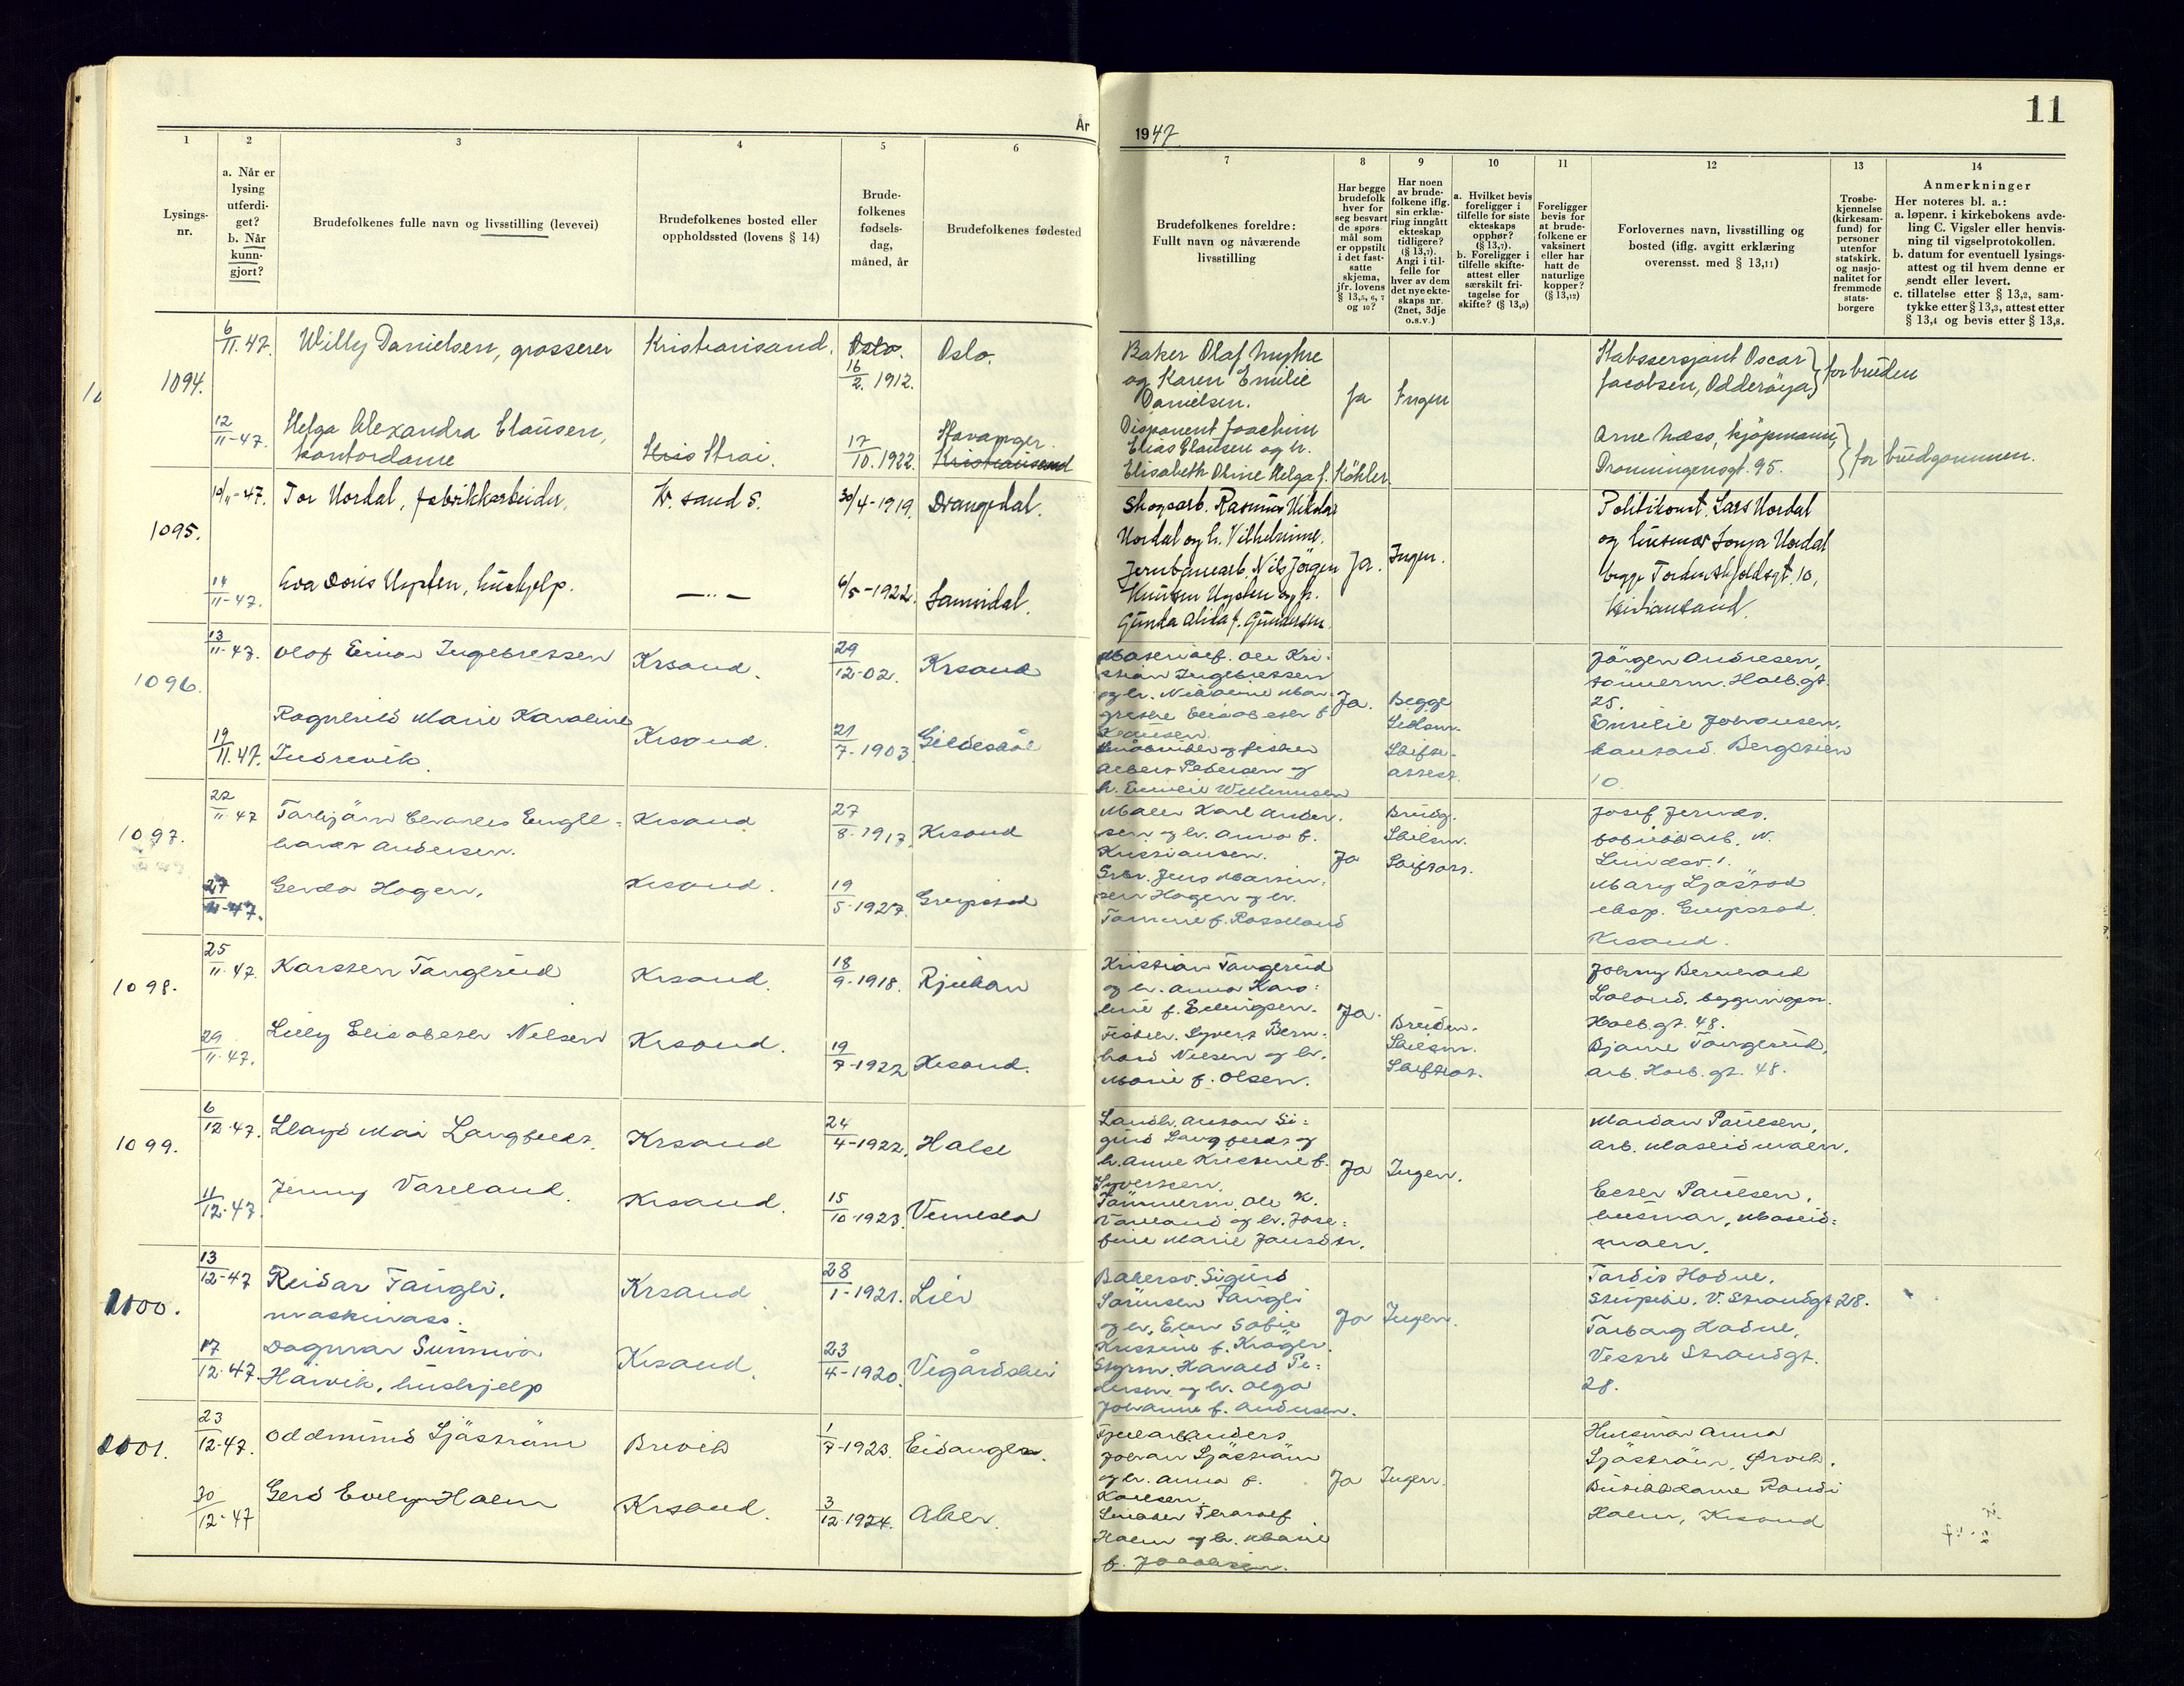 11
År
1947
1
2
3
4
5
6
7
8
9
10
11
12
13
14
Lysings-
nr.
a. Når er
lysing
utferdi-
get?
b. Når
kunn-
gjort?
Brudefolkenes fulle navn og livsstilling (levevei)
Brudefolkenes bosted eller
oppholdssted (lovens § 14)
Brude-
folkenes
fødsels-
dag,
måned, år
Brudefolkenes fødested
Brudefolkenes foreldre:
Fullt navn og nåværende
livsstilling
Har begge
brudefolk
hver for
seg besvart
de spørs-
mål som
er oppstilt
i det fast-
satte
skjema,
jfr. lovens
§ 13,5, 6, 7
og 10?
Har noen
av brude-
folkene iflg.
sin erklæ-
ring inngått
ekteskap
tidligere?
(§ 13,7).
Angi i til-
felle for
hver av dem
det nye ekte-
skaps nr.
(2net, 3dje
o.s.v.)
a. Hvilket bevis
foreligger i
tilfelle for siste
ekteskaps
opphør?
(§ 13,7).
b. Foreligger i
tilfelle skifte-
attest eller
særskilt fri-
tagelse for
skifte? (§ 13,9)
Foreligger
bevis for
at brude-
folkene er
vaksinert
eller har
hatt de
naturlige
kopper?
(§ 13,12)
Forlovernes navn, livsstilling og
bosted (iflg. avgitt erklæring
overensst. med § 13,11)
Trosbe-
kjennelse
(kirkesam-
fund) for
personer
utenfor
statskirk.
og nasjo-
nalitet for
fremmede
stats-
borgere
Anmerkninger
Her noteres bl. a.:
a. løpenr. i kirkebokens avde-
ling C. Vigsler eller henvis-
ning til vigselprotokollen.
b. datum for eventuell lysings-
attest og til hvem denne er
sendt eller levert.
c. tillatelse etter § 13,2, sam-
tykke etter § 13,3, attest etter
§ 13,4 og bevis etter § 13,8.
1094.
6/11.47.
Willy Danielsen, grosserer
Kristiansand.
Oslo.
16/2. 1912.
Oslo.
Baker Olaf Myhre
og Karen Emilie
Danielsen.
Ja
Ingen
Stabssersjant Oscar
Jacobsen, Odderøya
for bruden
12/11-47.
Helga Alexandra Clausen,
kontordame
Strai.
17/10. 1922.
Stavanger.
Kristiansand
Disponent Joachim
Elias Clausen og h.
Elisabeth Oline Helga f. Köhler
Arne Næss, kjøpmann,
Dronningensgt. 95.
for brudgommen.
1095.
10/11-47.
Tor Nordal, fabrikkarbeider.
Kr. sand S.
30/4-1919.
Drangedal.
Skogsarb. Rasmus
Nordal og h. Vilhelmine.
Ja.
Ingen.
Politikonst. Lars Nordal
og husmor Sonja Nordal
begge Tordenskjoldsgt. 10,
Kristiansand.
14/11-47.
Eva Doris Uglen, hushjelp.
— " —
6/5-1922.
Sannidal.
Jernbanearb. Nils Jörgen
Knutsen Uglen og h.
Gunda Alida f. Gundersen
1096.
13/11-47.
Olof Einar Ingebretsen
Krsand.
29/12-02.
Krsand
Ole Kri-
stian Ingebretsen
og h.
Ja.
Begge
Skilsm.
Skifte-
attest.
Jörgen Andresen,
tömmerm. Holb.gt.
25.
Emilie Johansen,
Bergstien
10.
19/11.47.
Ragnhild Marie Karoline
Indrevik.
Krsand.
21/7-1903
Gildeskål
Albert Pedersen og
h. Emelie Willumsen
1097.
22/11-47
Torbjörn Charles Engel-
hardt Andersen.
Krsand
27/8-1917.
Krsand
Maler Karl Ander-
sen og h. Anna f.
Kristiansen.
Ja
Brudg.
Skilsm.
Skifteatt.
Josef Jernes.
fabrikkarb. N.
Lundsv. 1.
27/11-47.
Gerda Hagen.
Krsand.
19/5-1927.
Grepstad
Jens Martin-
sen Hagen og h.
f. Rosseland
Mary Ljöstad
eksp. Grepstad.
Krsand.
1098.
25/11-47.
Karsten Tangerud
Krsand.
18/9-1918.
Rjukan
Kristian Tangerud
og h. Anna Karo-
line f. Ellingsen.
Ja.
Bruden.
Skilsm.
Skifteat.
Johnny Bernhard
Loland. bygningsarb.
Holb.gt. 48.
29/11-47.
Lilly Elisabeth Nilsen
Krsand.
19/7-1922
Krsand.
Fisker. Syvert Bern-
hard Nilsen og h.
Marie f. Olsen.
Bjarne Tangerud,
arb. Holb. gt. 48.
1099.
6/12-47.
Lloyd Mai Langfeldt.
Krsand
24/4-1922.
Halse
Landh. Anton Si-
gurd Langfeldt og
h. Anne Kristine f.
Syvertsen.
Ja
Ingen.
Mardon Paulsen,
arb. Moseidmoen.
11/12-47.
Jenny Vareland.
Krsand.
15/10-1923.
Vennesla
Tömmerm. Ole K.
Vareland og h. Jose-
fine Marie Jansdtr.
Ester Paulsen.
husmor, Moseid-
moen.
1100.
13/12-47
Reidar Tangli.
maskinass.
Krsand.
28/1-1921.
Lier
Bakersv. Sigurd
Sörensen Tangli
og h. Elen Sofie
Kristine f. Kröger.
Ja
Ingen.
Tordis Hodne.
V. Strandgt 28.
17/12-47.
Dagmar Sunniva
Håivik, hushjelp
Krsand.
23/4-1920.
Vegårdshei
Styrm. Harald Pe-
dersen og h. Olga
Johanne f. Andersen.
Torborg Hodne,
Vestre Strandgt.
28.
1101.
23/12-47.
Oddmund Sjöström
Brevik
1/7-1923.
Eidanger.
Anders
Johan Sjöström
og h. Anna f.
Karlsen.
Ja
Ingen.
Husmor Anna
Sjöström, Brevik.
30/12-47
Gerd Evelyn Holm
Krsand.
3/12-1924.
Aker.
Snekker Thoralf
Holm og h. Marie
f. Jacobsen.
Butikkdame Randi
Holm, Krsand